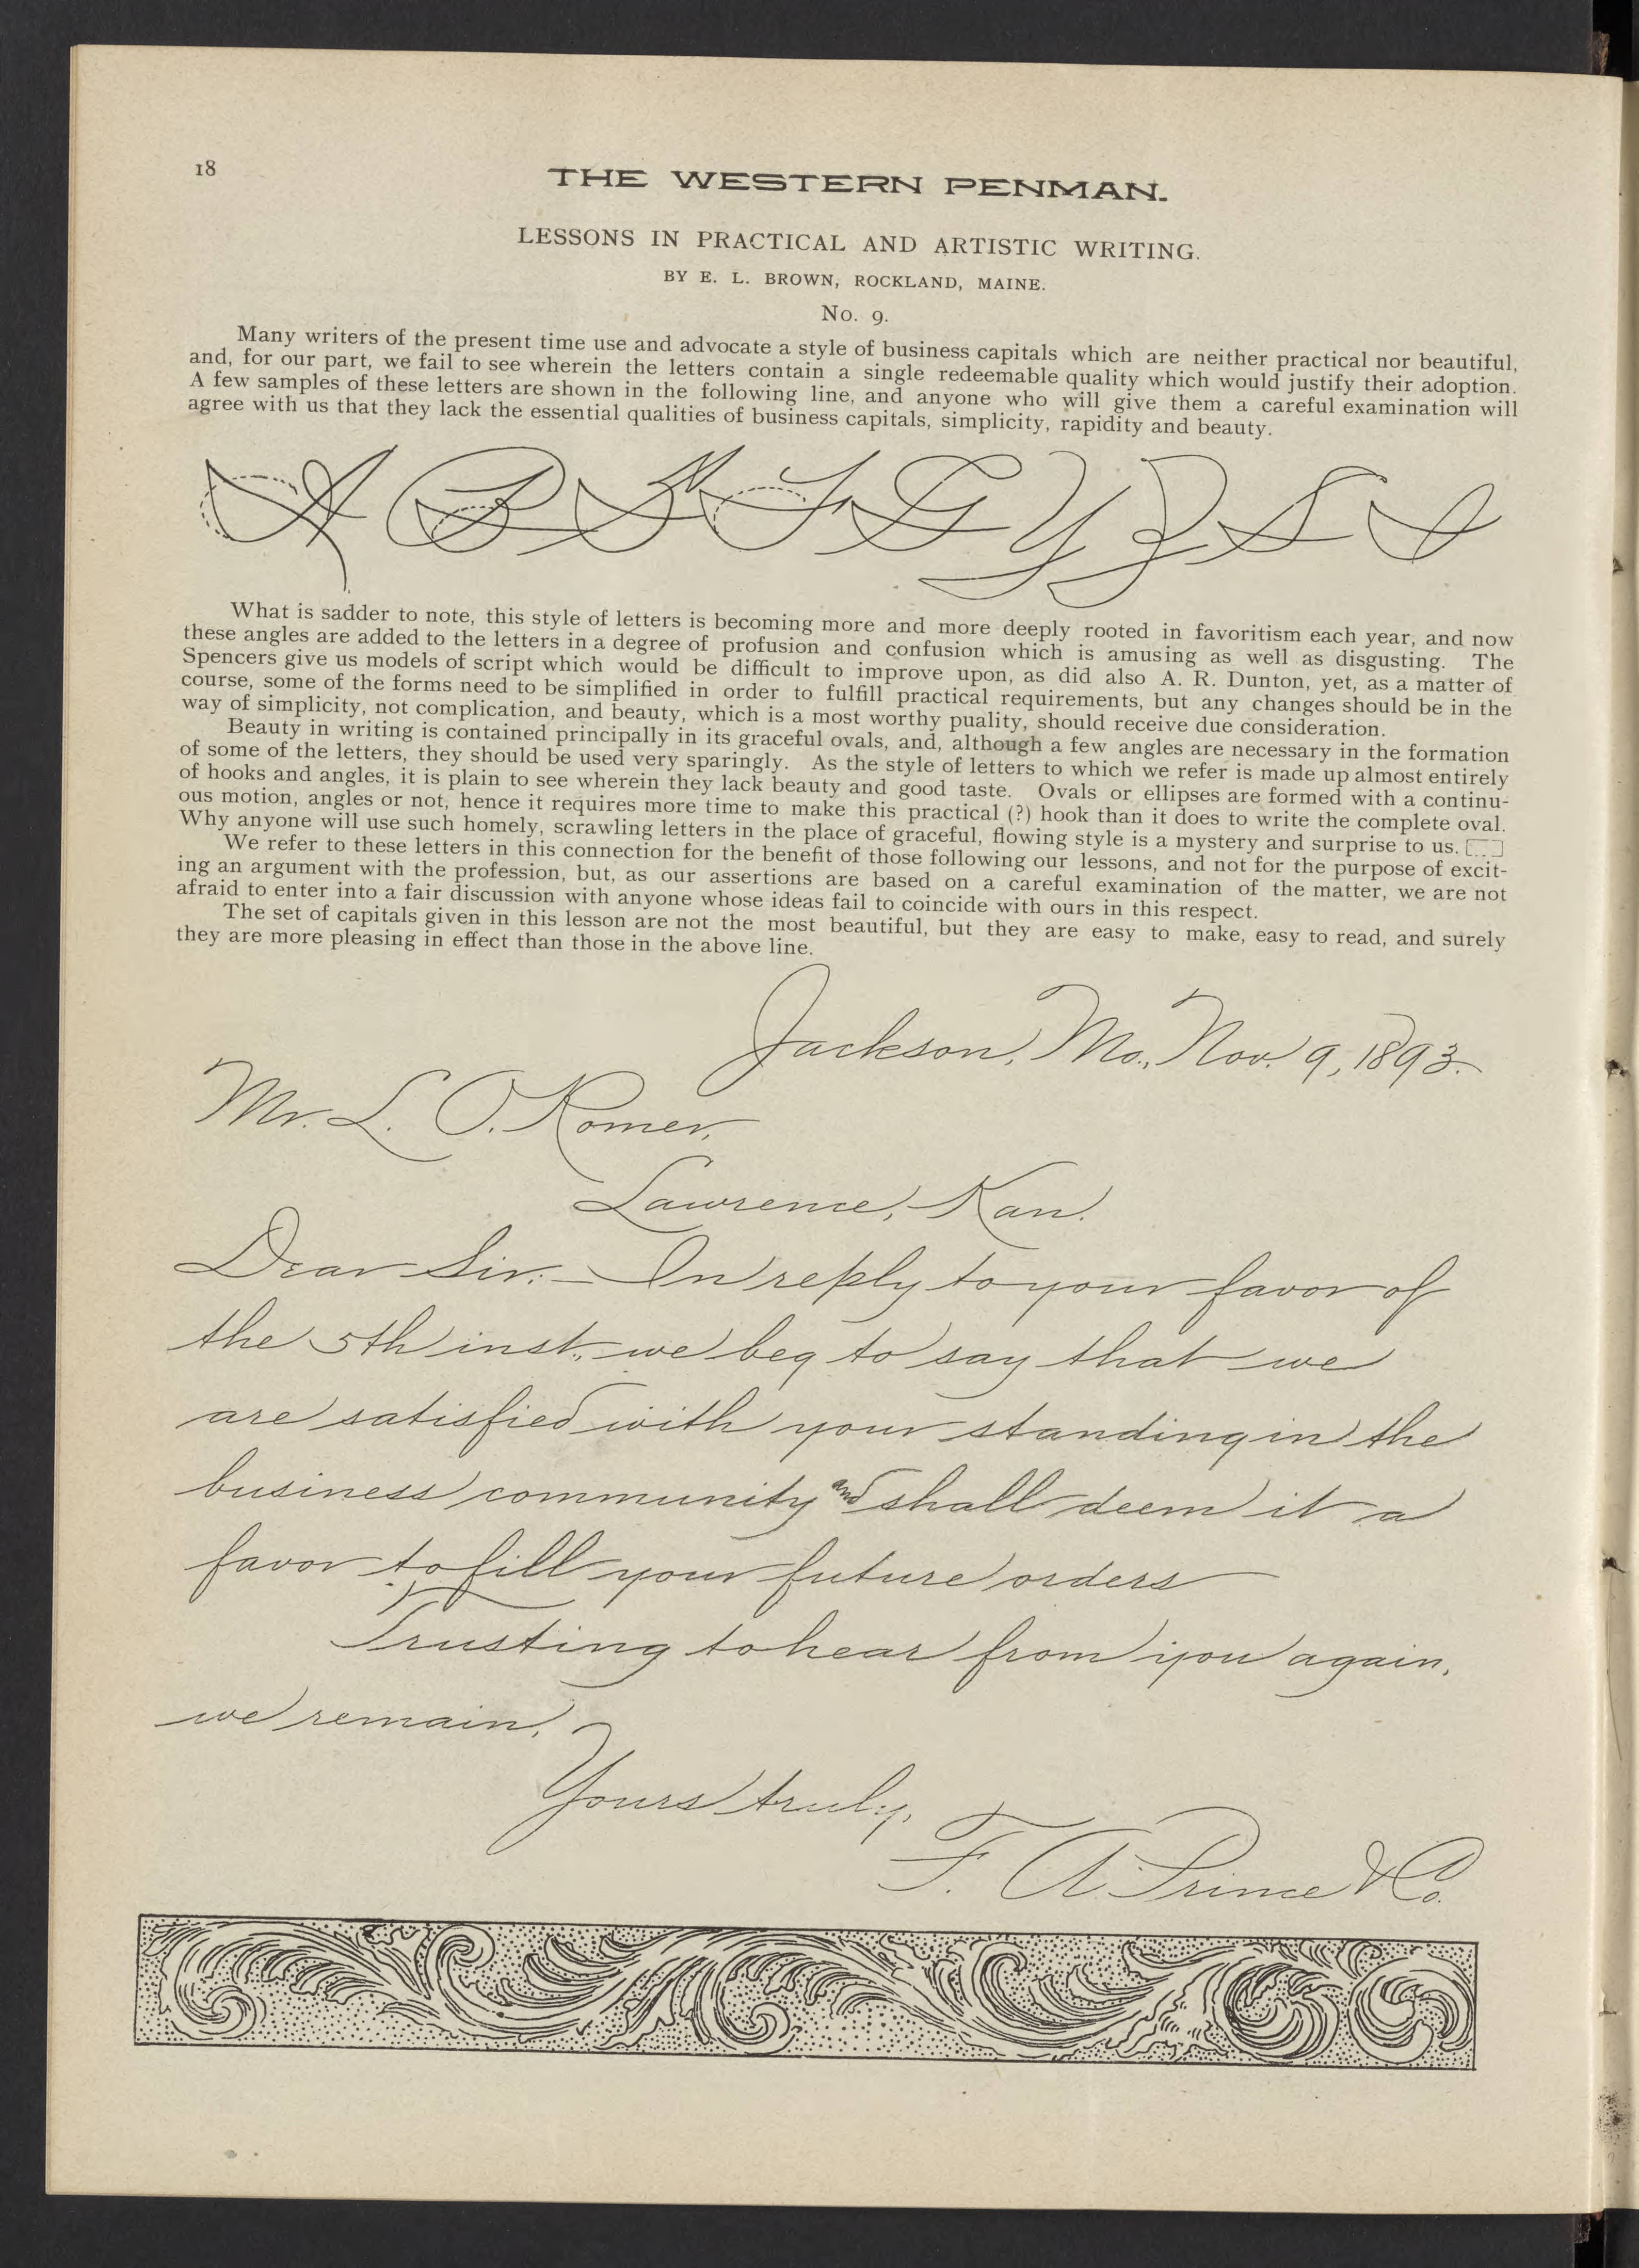 18
THE WESTERN PENMAN.
LESSONS IN PRACTICAL AND ARTISTIC WRITING.
BY E. L. BROWN, ROCKLAND, MAINE.
No. 9.
Many writers of the present time use and advocate a style of business capitals which are neither practical nor beautiful,
and, for our part, we fail to see wherein the letters contain a single redeemable quality which would justify their adoption.
A few samples of these letters are shown in the following line, and anyone who will give them a careful examination will
agree with us that they lack the essential qualities of business capitals, simplicity, rapidity and beauty.
A B S T G Y Z S I
What is sadder to note, this style of letters is becoming more and more deeply rooted in favoritism each year, and now
these angles are added to the letters in a degree of profusion and confusion which is amusing as well as disgusting. The
Spencers give us models of script which would be difficult to improve upon, as did also A. R. Dunton, yet, as a matter of
course, some of the forms need to be simplified in order to fulfill practical requirements, but any changes should be in the
way of simplicity, not complication, and beauty, which is a most worthy puality, should receive due consideration.
Beauty in writing is contained principally in its graceful ovals, and, although a few angles are necessary in the formation
of some of the letters, they should be used very sparingly. As the style of letters to which we refer is made up almost entirely
of hooks and angles, it is plain to see wherein they lack beauty and good taste. Ovals or ellipses are formed with a continu-
ous motion, angles or not, hence it requires more time to make this practical (?) hook than it does to write the complete oval.
Why anyone will use such homely, scrawling letters in the place of graceful, flowing style is a mystery and surprise to us.
We refer to these letters in this connection for the benefit of those following our lessons, and not for the purpose of excit-
ing an argument with the profession, but, as our assertions are based on a careful examination of the matter, we are not
afraid to enter into a fair discussion with anyone whose ideas fail to coincide with ours in this respect.
The set of capitals given in this lesson are not the most beautiful, but they are easy to make, easy to read, and surely
they are more pleasing in effect than those in the above line.
Jackson, Mo., Nov. 9, 1893.
Mr. L. O. Romer,
Lawrence, Kan.
Dear Sir:— In reply to your favor of
the 5th inst., we beg to say that we
are satisfied with your standing in the
business community and shall deem it a
favor to fill your future orders
Trusting to hear from you again,
we remain,
Yours truly,
F. A. Prince & Co.